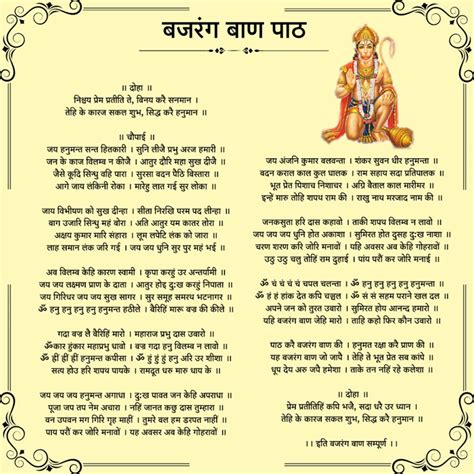 बजरंग बाण पाठ
॥ दोहा ॥
निश्चय प्रेम प्रतीति ते, बिनय करै सनमान ।
तेहि के कारज सकल शुभ, सिद्ध करै हनुमान ॥
॥ चौपाई ॥
जय हनुमन्त सन्त हितकारी । सुनि लीजै प्रभु अरज हमारी ॥
जन के काज विलम्ब न कीजै । आतुर दौरि महा सुख दीजै ॥
जैसे कूदि सिन्धु वहि पारा । सुरसा बदन पैठि विस्तारा ॥
आगे जाय लंकिनी रोका । मारेहु लात गई सुर लोका ॥
जाय विभीषण को सुख दीन्हा । सीता निरखि परम पद लीन्हा ॥
बाग उजारि सिन्धु महं बोरा । अति आतुर यम कातर तोरा ॥
अक्षय कुमार मारि संहारा । लूम लपेटि लंक को जारा ॥
लाह समान लंक जरि गई । जय जय धुनि सुर पुर महं भई ॥
अब विलम्ब केहि कारण स्वामी । कृपा करहुं उर अन्तर्यामी ॥
जय जय लक्ष्मण प्राण के दाता । आतुर होइ दुःख करहुं निपाता ॥
जय गिरिधर जय जय सुख सागर । सुर समूह समरथ भटनागर ॥
ॐ हनु हनु हनु हनु हनुमन्त हठीले । वैरिहिं मारू बज्र की कीले ॥
गदा बज्र लै बैरिहिं मारो । महाराज प्रभु दास उबारो ॥
ॐकार हुंकार महाप्रभु धावो । बज्र गदा हनु विलम्ब न लावो ॥
ॐ ह्रीं ह्रीं ह्रीं हनुमन्त कपीसा । ॐ हुं हुं हुं हनु अरि उर शीशा ॥
सत्य होउ हरि शपथ पायके । रामदूत धरु मारु धाय के ॥
जय जय जय हनुमन्त अगाधा । दुःख पावत जन केहि अपराधा ॥
पूजा जप तप नेम अचारा । नहिं जानत कछु दास तुम्हारा ॥
वन उपवन मग गिरि गृह माहीं । तुमरे बल हम डरपत नाहीं ॥
पाय परौं कर जोरि मनावों । यह अवसर अब केहि गोहरावों ॥
जय अंजनि कुमार बलवन्ता । शंकर सुवन धीर हनुमन्ता ॥
बदन कराल काल कुल घालक । राम सहाय सदा प्रतिपालक ॥
भूत प्रेत पिशाच निशाचर । अग्नि बैताल काल मारीमर ॥
इन्हें मारु तोहि शपथ राम की । राखु नाथ मरजाद नाम की ॥
जनकसुता हरि दास कहावो । ताकी शपथ विलम्ब न लावो ॥
जय जय जय धुनि होत अकाशा । सुमिरत होत दुसह दुःख नाशा ॥
चरण शरण करि जोरि मनावों । यहि अवसर अब केहि गोहरावों ॥
उठु उठु चलु तोहिं राम दुहाई । पांय परौं कर जोरि मनाई ॥
ॐ चं चं चं चं चपल चलन्ता । ॐ हनु हनु हनु हनु हनुमन्ता ॥
ॐ हं हं हांक देत कपि चञ्चल । ॐ सं सं सहम पराने खल दल ॥
अपने जन को तुरत उबारो । सुमिरत होय आनन्द हमारो ॥
यहि बजरंग बाण जेहि मारो । ताहि कहो फिर कौन उबारो ॥
पाठ करै बजरंग बाण की । हनुमत रक्षा करै प्राण की ॥
यह बजरंग बाण जो जापै । तेहि ते भूत प्रेत सब कांपे ॥
धूप देय अरु जपै हमेशा । ताके तन नहिं रहे कलेशा ॥
॥ दोहा ॥
प्रेम प्रतीतिहिं कपि भजै, सदा धरै उर ध्यान ।
तेहि के कारज सकल शुभ, सिद्ध करै हनुमान ॥
॥ इति बजरंग बाण सम्पूर्ण ॥